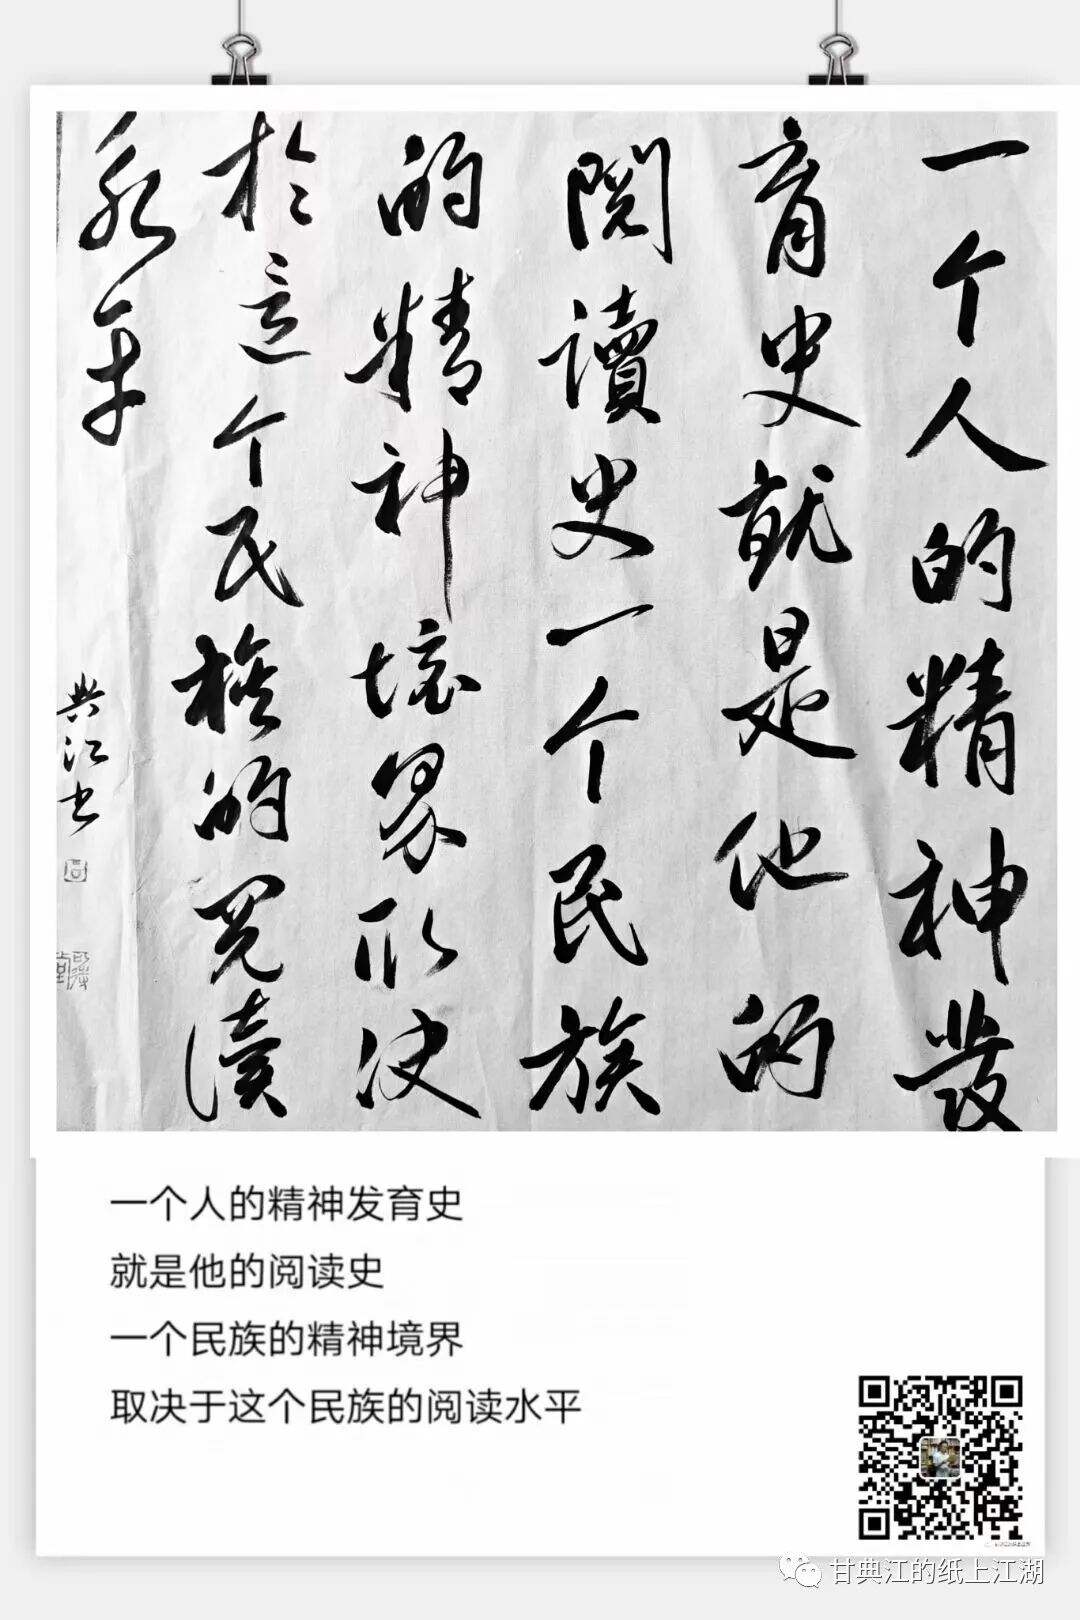 一个人的精神發
育史就是他的
閱讀史一个民族
的精神境界取决
於这个民族的阅读
水平
典江书
一个人的精神发育史
就是他的阅读史
一个民族的精神境界
取决于这个民族的阅读水平
甘典江的纸上江湖